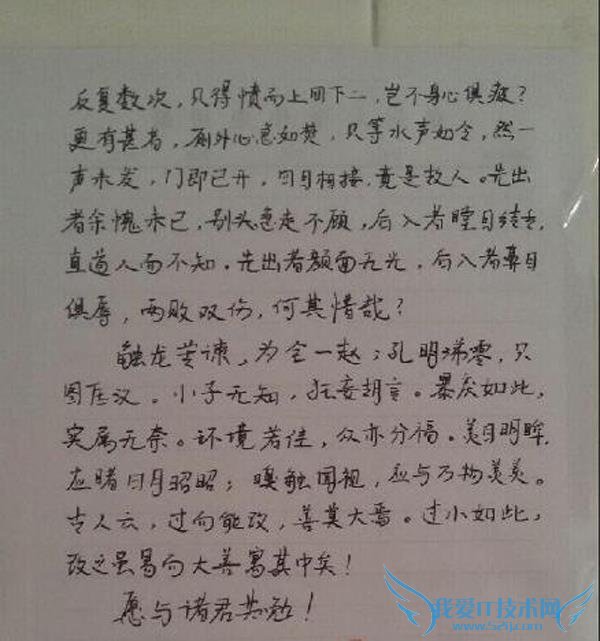 反复数次，只得愤而上回下二，岂不身心俱疲？
更有甚者，厕外心急如焚，只等水声如令，然一
声未发，门即已开，四目相接，竟是故人。先出
者余愧未已，别头急走不顾，后入者瞠目结舌，
直道人面不知。先出者颜面无光，后入者鼻目
俱辱，两败双伤，何其惜哉？
触龙苦谏，为全一赵；孔明涕零，只
图匡汉。小子无知，狂妄胡言。暴戾如此，
实属无奈。环境若佳，众亦分福。美目明眸，
应睹日月昭昭；嗅触闻视，应与万物美美。
古人云，过而能改，善莫大焉。过小如此，
改之虽易而大善寓其中矣！
愿与诸君共勉！
我爱IT技术网
www.52ij.com